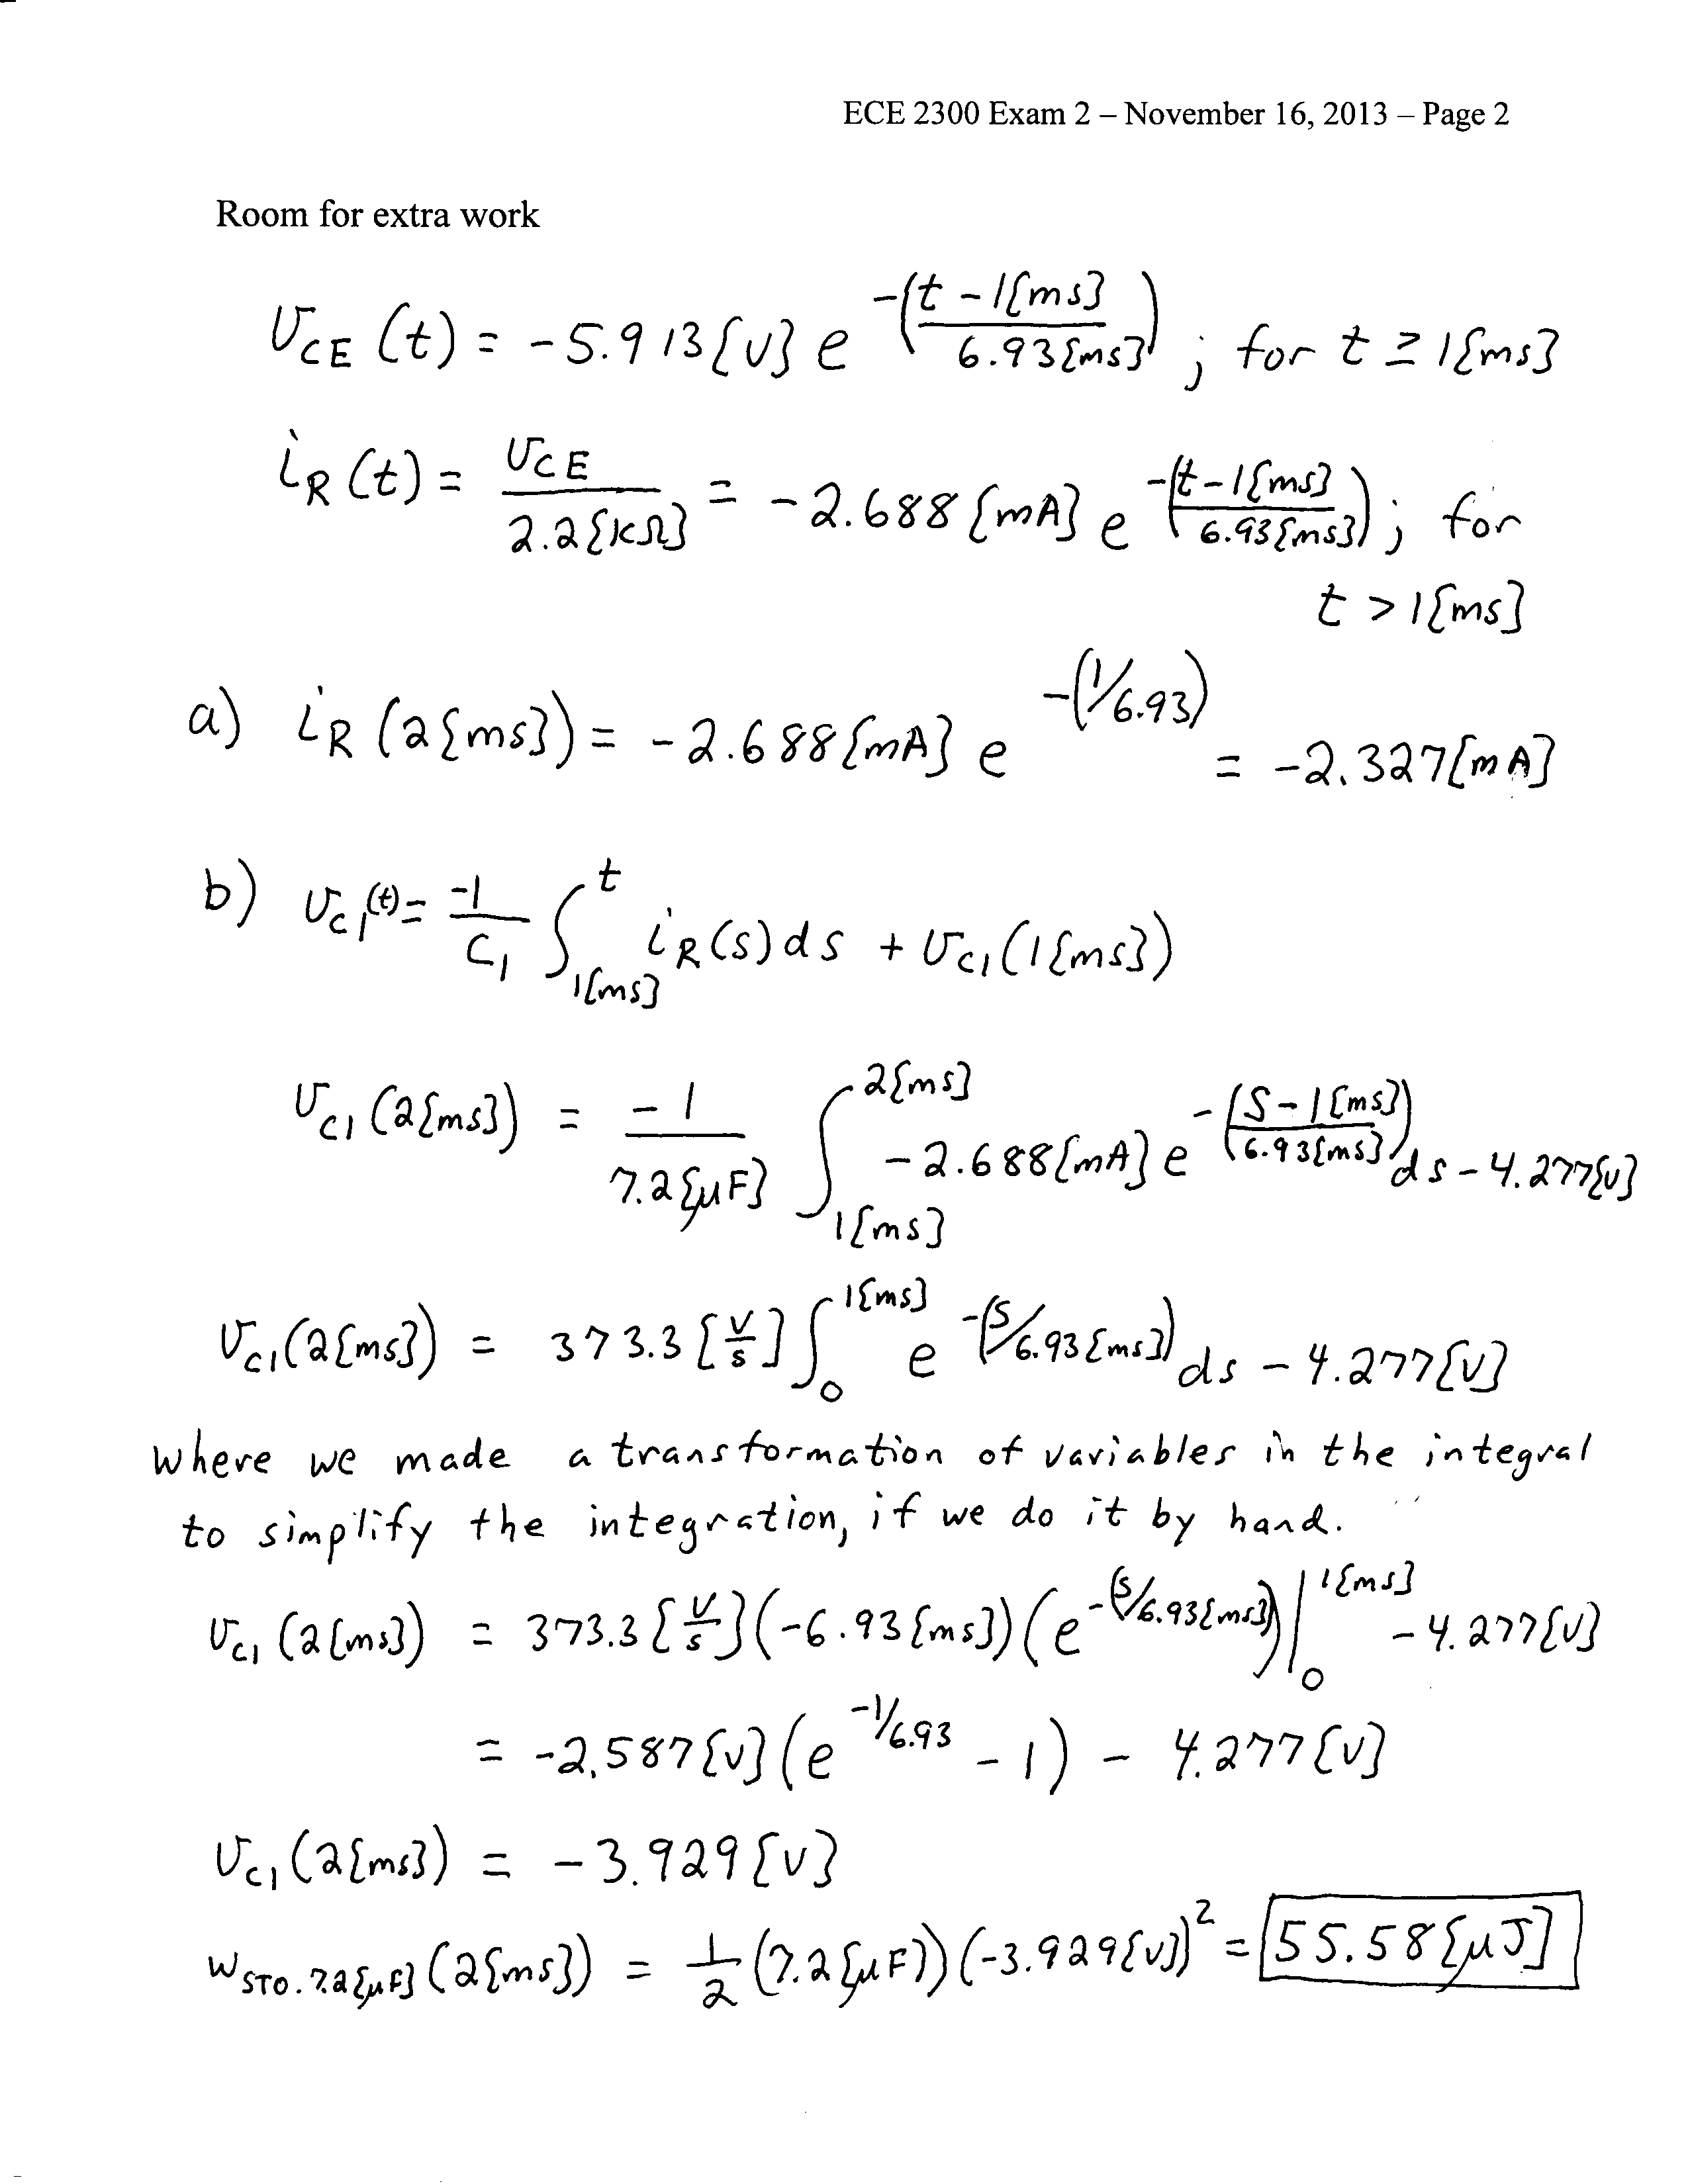 ECE 2300 Exam 2 – November 16, 2013 – Page 2
Room for extra work
v_CE (t) = -5.913[V] e^-((t - 1[ms])/6.93[ms]) ; for t ≥ 1[ms]
i_R (t) = v_CE/2.2[kΩ] = -2.688[mA] e^-((t-1[ms])/6.93[ms]) ; for
t > 1[ms]
a) i_R (2[ms]) = -2.688[mA] e^-(1/6.93) = -2.327[mA]
b) v_C1(t) = -1/C_1 ∫_1[ms]^t i_R(s) ds + v_C1(1[ms])
v_C1 (2[ms]) = -1/7.2[μF] ∫_1[ms]^2[ms] -2.688[mA] e^-((s-1[ms])/6.93[ms]) ds - 4.277[V]
v_C1(2[ms]) = 373.3 [V/s] ∫_0^1[ms] e^-(s/6.93[ms]) ds - 4.277[V]
where we made a transformation of variables in the integral
to simplify the integration, if we do it by hand.
v_C1 (2[ms]) = 373.3 [V/s](-6.93[ms])(e^-(s/6.93[ms]))|_0^1[ms] - 4.277[V]
= -2.587[V](e^-1/6.93 - 1) - 4.277[V]
v_C1(2[ms]) = -3.929[V]
w_STO.7.2[μF] (2[ms]) = 1/2 (7.2[μF])(-3.929[V])^2 = 55.58[μJ]